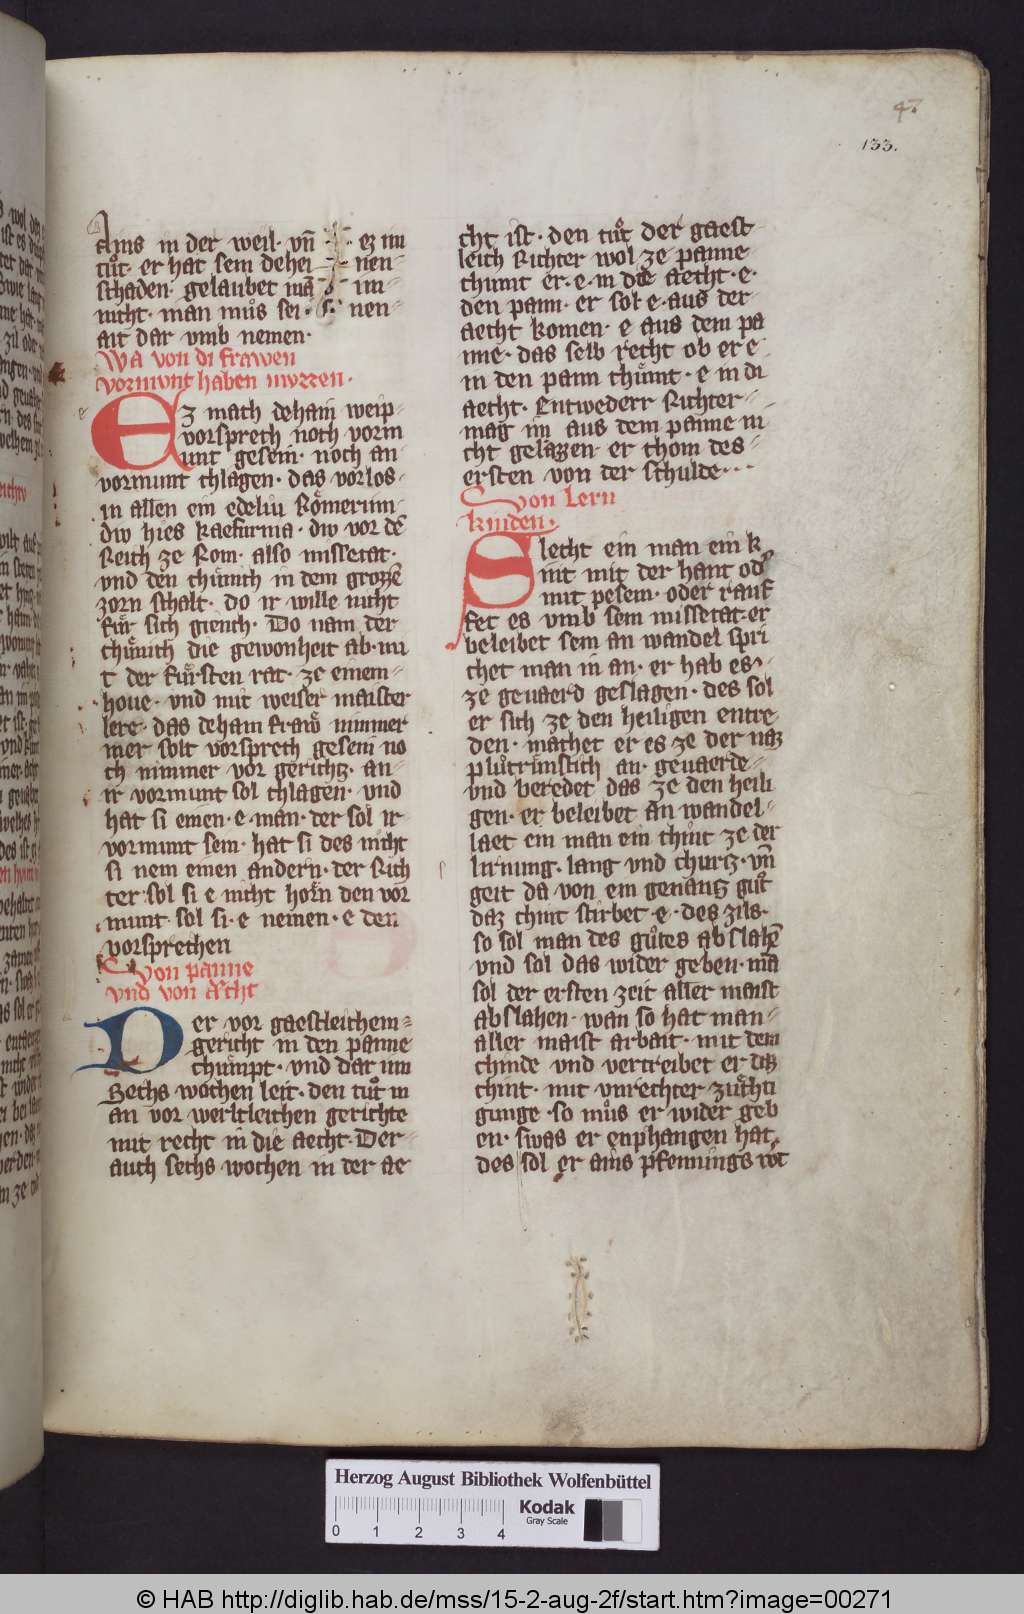 47
133.
Ains in der weil. vn̄ ez im
tuͦt. er hat sein dehei nen
schaden. gelaubet mā im
nicht. man muͦs sei nen
ait dar vmb nemen.
Wa von di frawen
vormunt haben muezzen.
Ez mach dehain weip
vorsprech noch vorm
unt gesein. noch an
vormunt chlagen. das vorlos
in allen ein edeliu Roͤmerinn
diw hies kaefurnia. diw vor dē
Reich ze Rom. also missetat.
vnd den chuͤnich in dem grozzē
zorn schalt. do ir wille nicht
fuͤr sich giench. Do nam der
chuͤnich die gewonheit ab. mi
t der fuͤrsten rat. ze einem
houe. vnd mit weiser maister
lere. das dehain frawͤ nimmer
mer solt vorsprech gesein no
ch nimmer vor gerichtz. an
ir vormunt sol chlagen. vnd
hat si einen. e. man. der sol ir
vormunt sein. hat si des nicht
si nem einen andern. der Rich
ter sol si e nicht horn den vor
munt. sol si. e nemen. e den
vorsprechen
Von panne
vnd von Acht
Der vor gaestleichem
gericht in den panne
chuͤmpt. vnd dar inn
Sechs wochen leit. den tuͦt in
an vor werltleichen gerichte
mit recht in die aecht. Der
auch sechs wochen in der ae
cht ist. den tuͦt der gaest
leich Richter wol ze panne
chumt er. e. in die aecht. e.
den pann. er sol e. aus der
aecht komen. e aus dem pa
nne. das selb recht ob er e
in den pann chuͤmt. e in di
aecht. Entwederr Richter
mag in aus dem panne ni
cht gelazzen. er chom des
ersten von der schulde
Von Lern
kinden.
Slecht ein man ein k
int mit der hant od
mit pesem. oder rauf
fet es vmb sein missetat. er
beleibet sein an wandel spri
chet man in an. er hab es
ze geuaerd geslagen. des sol
er sich ze den heiligen entre
den. machet er es ze der naz
pluͦtruͤnstich an. geuaerde
vnd beredet das ze den heili
gen. er beleibet an wandel
laet ein man ein chint ze der
lirnung. lang vnd churtz. vn̄
geit da von ein genantz guͦt
daz chint stirbet. e. des zils.
so sol man des guͦtes abslahē
vnd sol das wider geben. mā
sol der ersten zeit aller maist
abslahen. wan so hat man
aller maist arbait. mit dem
chinde vnd vertreibet er daz
chint. mit vnrechter zuͤhti
gunge. so muͦs er wider geb
en. swas er enphangen hat.
des sol er ains pfennings
Herzog August Bibliothek Wolfenbüttel
0 1 2 3 4
Kodak
Gray Scale
© HAB http://diglib.hab.de/mss/15-2-aug-2f/start.htm?image=00271